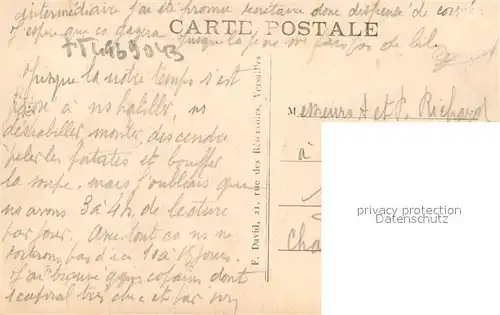 intermédiaire j'ai été promu secrétaire donc dispensé de
J'espère que ça durera jusqu'à la fin
CARTE POSTALE
FT4969043
Jusque là notre temps s'est
passé à ns habiller, ns
déshabiller monter, descendre
peler les patates et bouffer
la soupe. mais j'oubliais que
ns avons 3 à 4h. de lecture
par jour. Avec tout ça ns ne
sortirons pas d'ici 10 à 15 jours.
J'ai trouvé qqs copains dont
1 caporal très chic et par
F. David, 21, rue des Réservoirs, Versailles
M essieurs A et P. Richard
à
privacy protection
Datenschutz